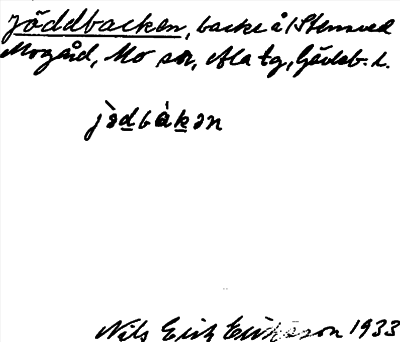 Jöddbacken, backe å/Stensved
Mogård, Mo sn, Ala tg, Gävleb. l.
jòd̲bàk̲ən
Nils Erik Eriksson 1933